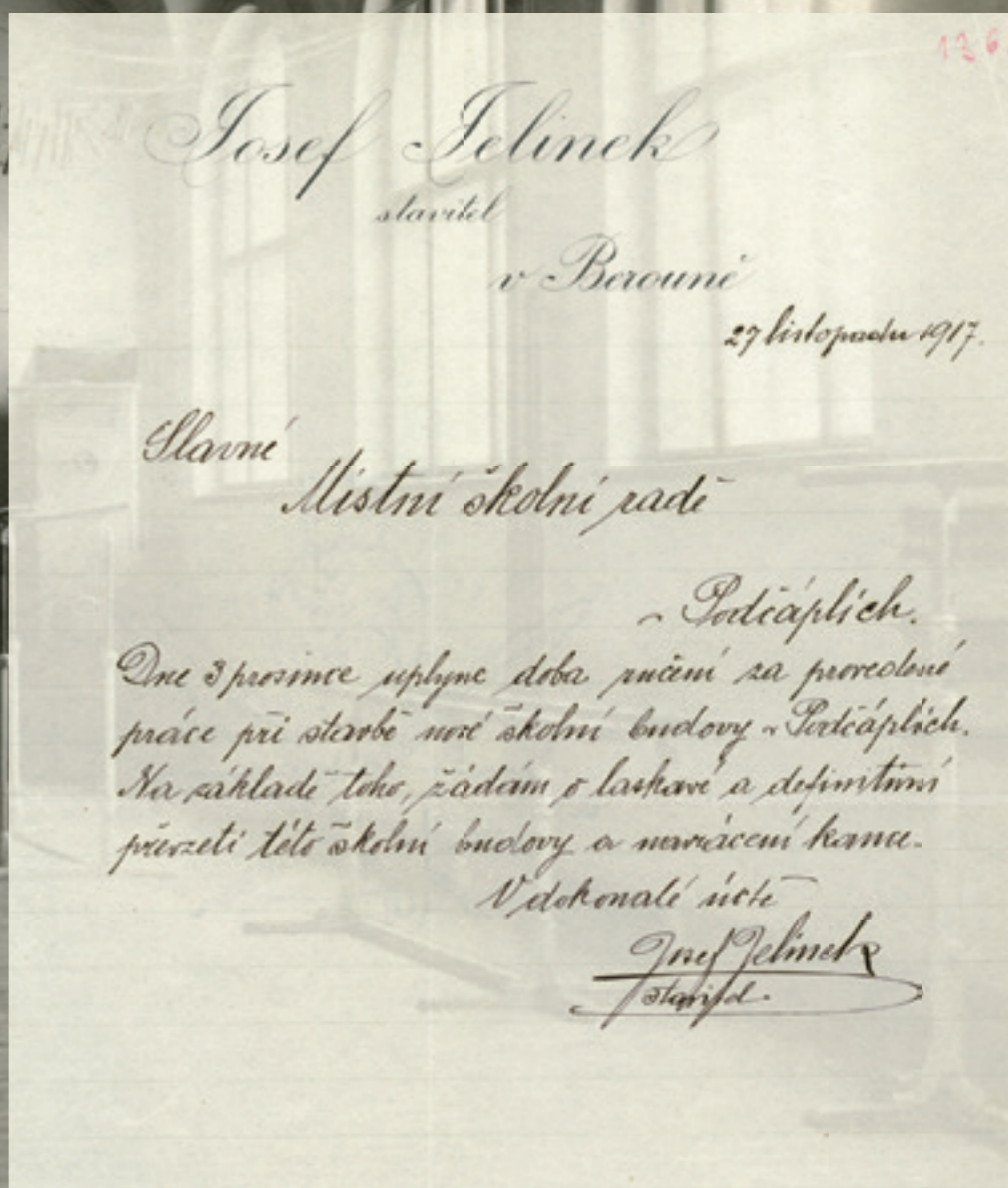 136
Josef Jelínek
stavitel
v Berouně
27 listopadu 1917.
Slavné
Místní školní radě
v Podčáplích.
Dne 3 prosince uplyne doba ručení za provedené
práce při stavbě nové školní budovy v Podčáplích.
Na základě toho, žádám o laskavé a definitivní
převzetí této školní budovy a navrácení kauce.
V dokonalé úctě
Josef Jelínek
stavitel.